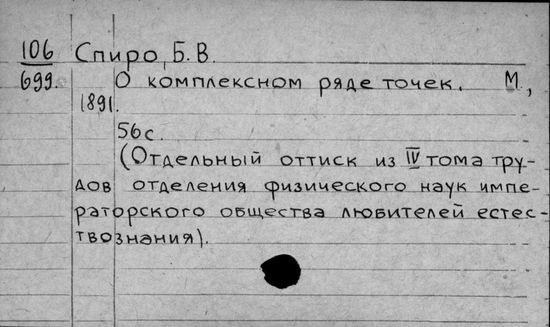 106 Спиро, Б. В.
699. О комплексном ряде точек. М.,
1891.
56с.
(Отдельный оттиск из IV тома тру-
дов отделения физического наук импе-
раторского общества любителей естес-
твознания).